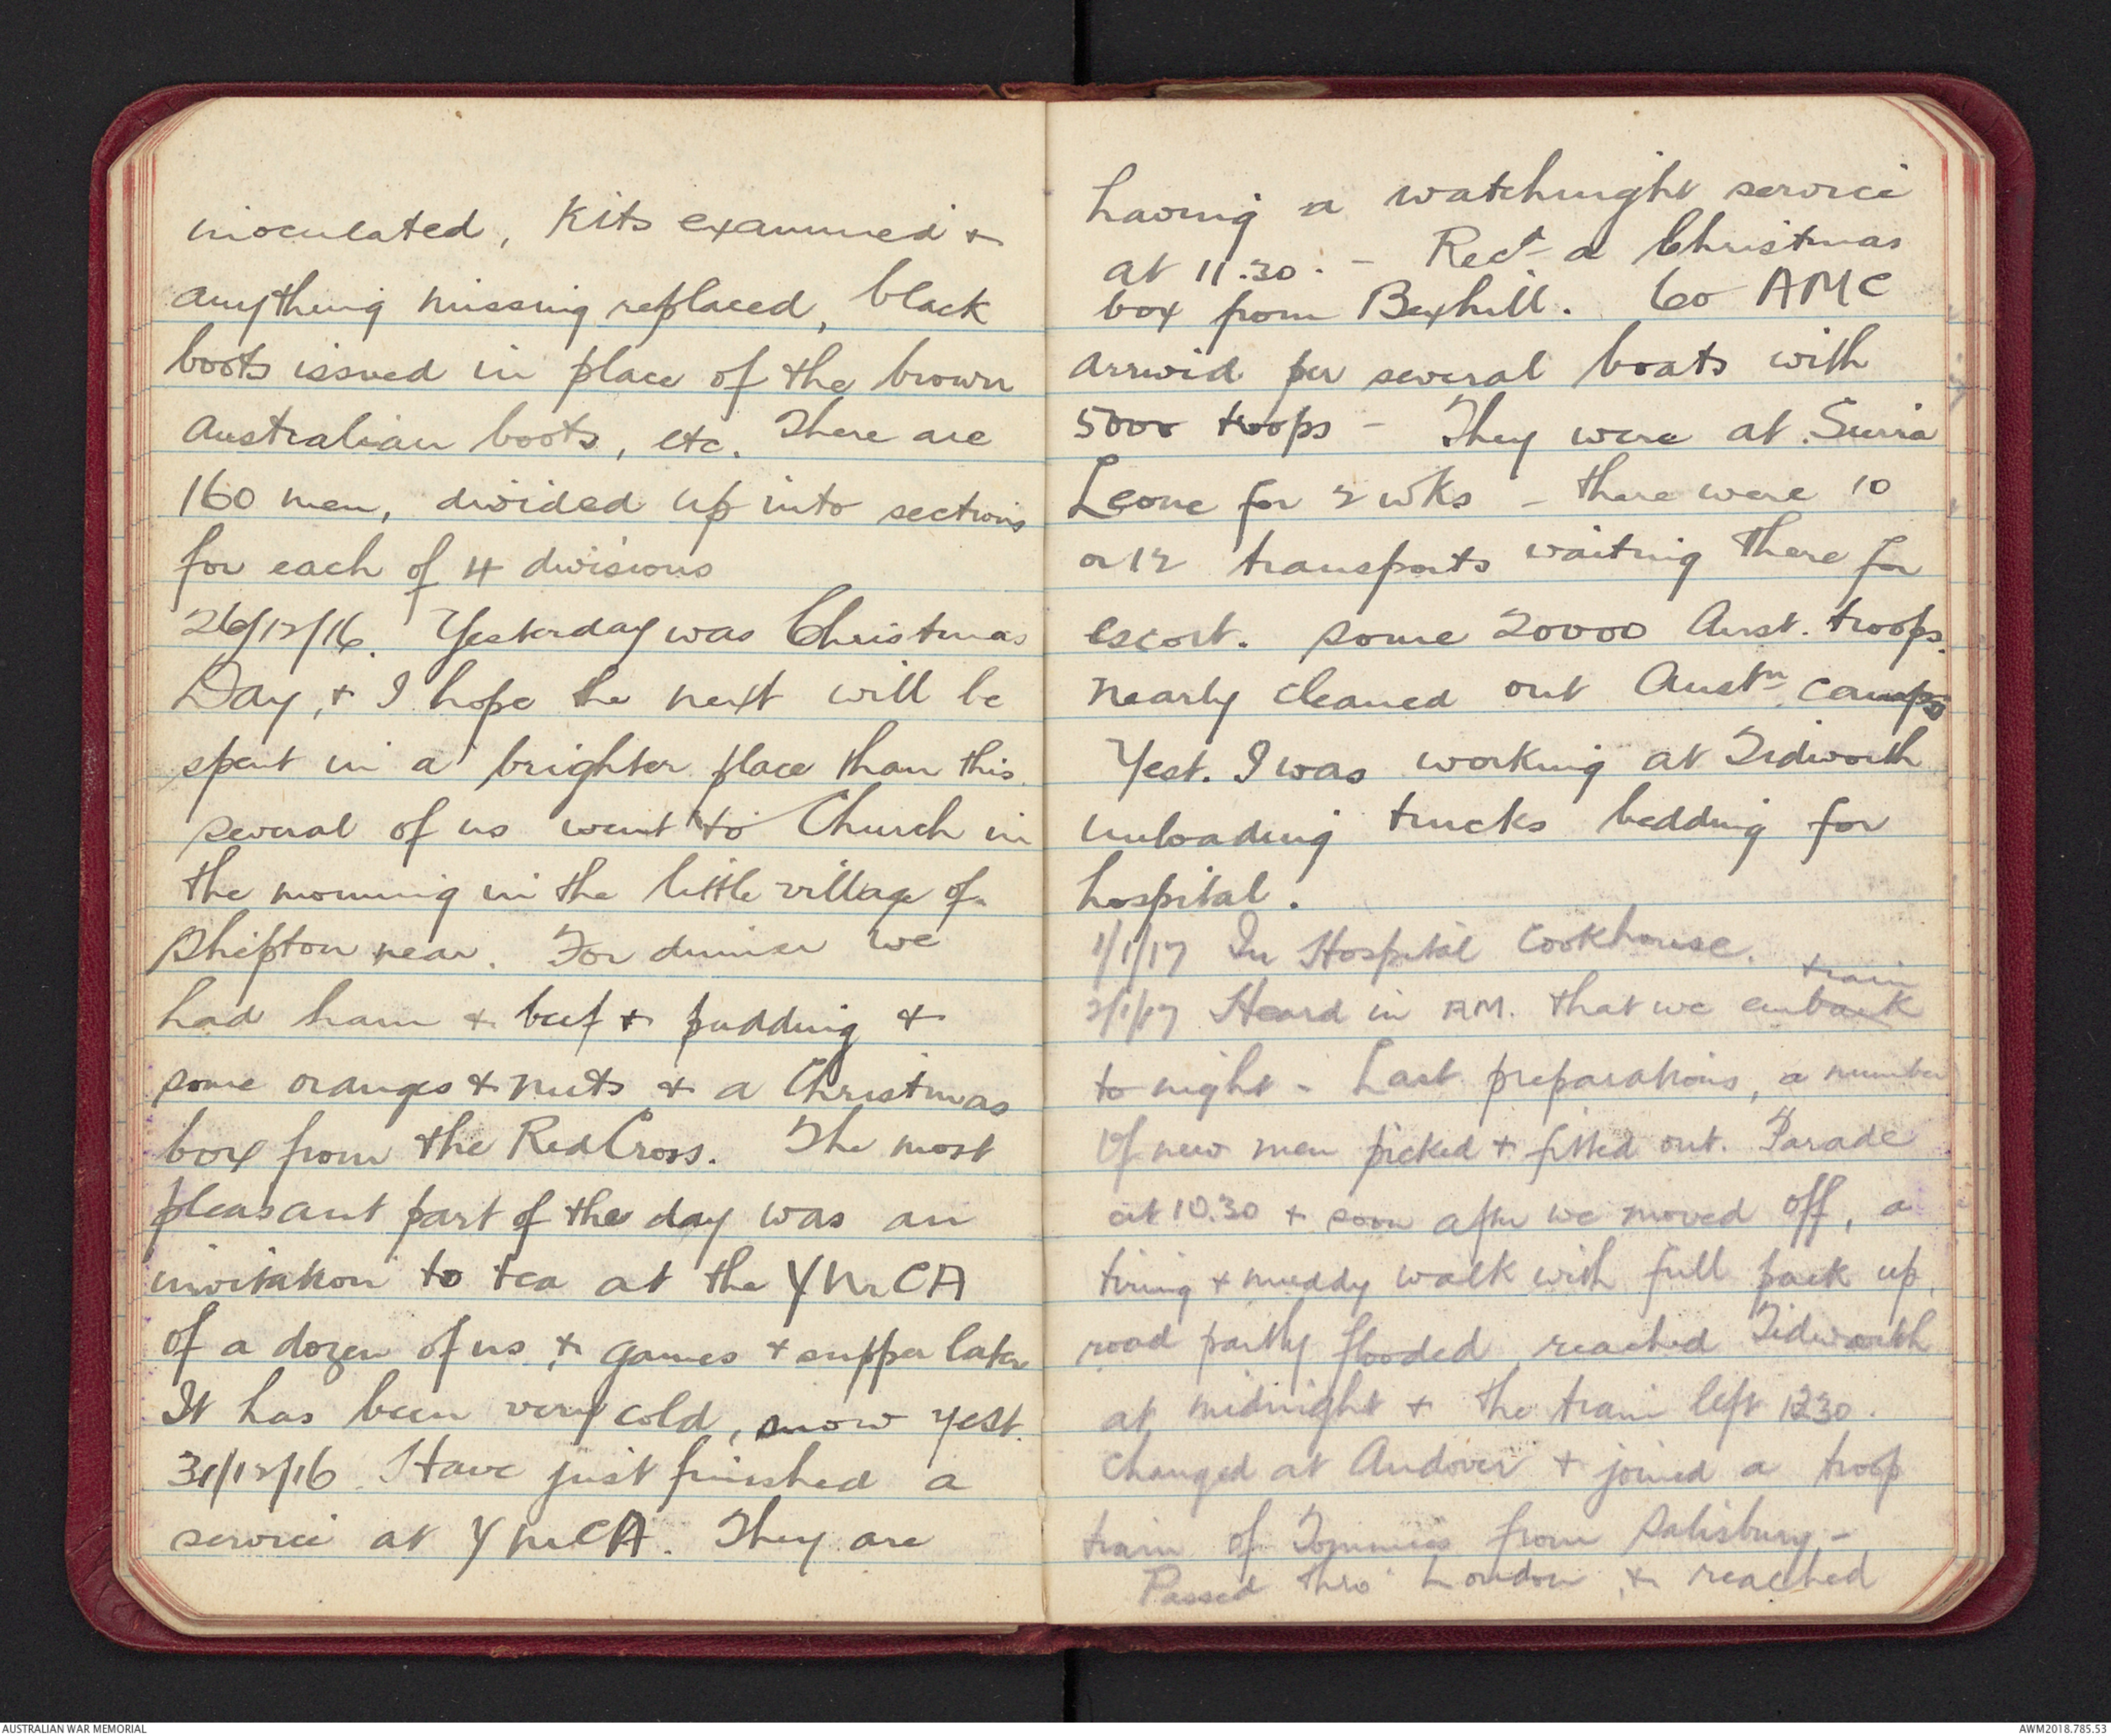 inoculated, Kits examined +
anything missing replaced, black
boots issued in place of the brown
Australian boots, etc. There are
160 men, divided up into sections
for each of 4 divisions
26/12/16. Yesterday was Christmas
Day, + I hope the next will be
spent in a brighter place than this.
several of us went to Church in
the morning in the little village of
Shipton near. For dinner we
had ham + beef + pudding +
some oranges + nuts + a Christmas
box from the Red Cross. The most
pleasant part of the day was an
invitation to tea at the YMCA
of a dozen of us, + games + supper later
It has been very cold, snow yest.
31/12/16. Have just finished a
service at YMCA. They are
having a watchnight service
at 11.30. - Recd a Christmas
box from Bexhill. 60 AMC
arrivid per several boats with
5000 troops - They were at Sierra
Leone for 2 wks - there were 10
or 12 transports waiting there for
escort. some 20000 Aust. troops.
nearly cleaned out Austn. camps
Yest. I was working at Tidworth
unloading trucks bedding for
hospital.
1/1/17 In Hospital Cookhouse.
train
2/1/17 Heard in AM. that we embark
to night - Last preparations, a number
of new men picked + fitted out. Parade
at 10.30 + soon after we moved off, a
tiring + muddy walk with full pack up,
road partly flooded reached Tidworth
at midnight + the train left 1230.
Changed at Andover + joined a troop
train of Tommies from Salisbury -
Passed thro' London, + reached
AUSTRALIAN WAR MEMORIAL
AWM2018.785.53